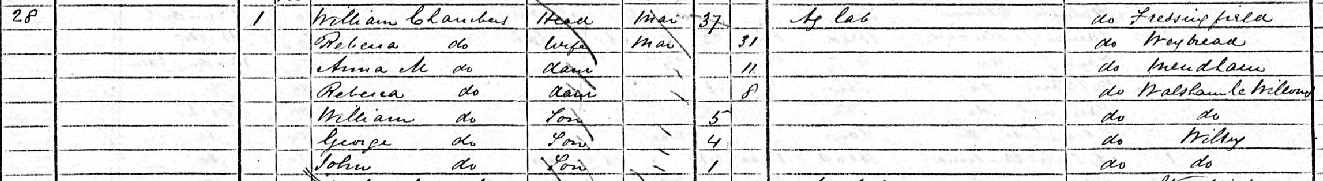 28 1 William Chambers Head Mar 37 Ag lab do Fressingfield
Rebecca do Wife Mar 31 do Weybread
Anna M do daur 11 do Mendham
Rebecca do daur 8 do Walsham le Willows
William do Son 5 do do
George do Son 4 do Wilby
John do Son 1 do do